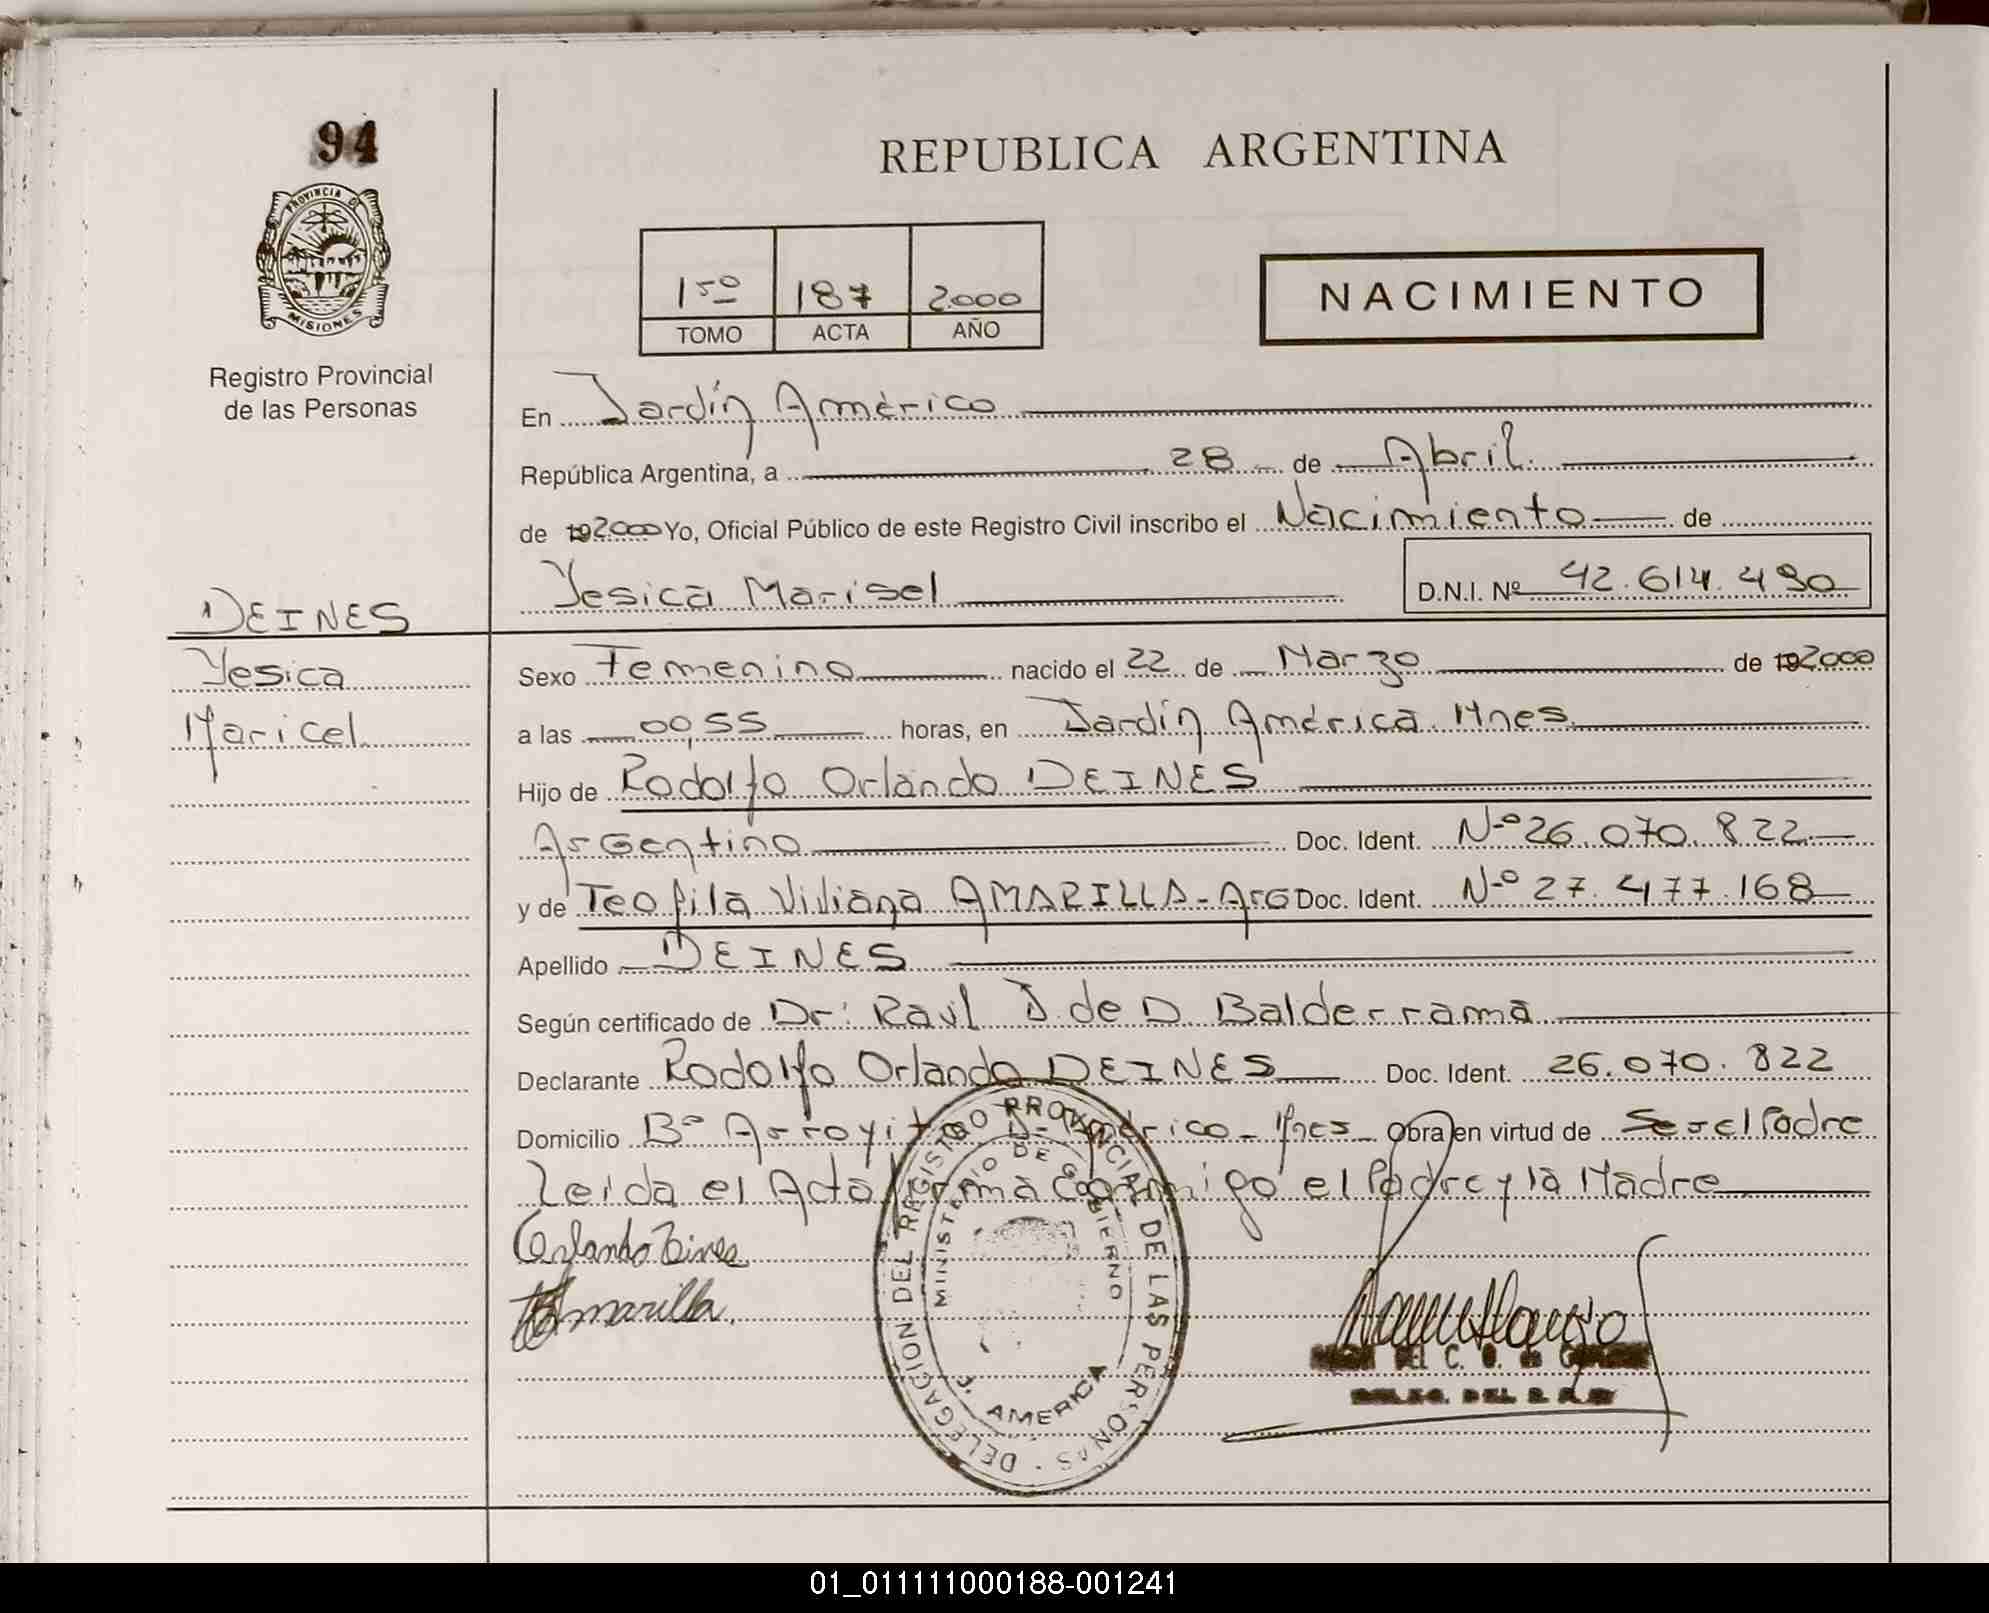 94
REPUBLICA ARGENTINA
PROVINCIA DE
MISIONES
Registro Provincial
de las Personas
1 5º 187 2000
TOMO ACTA AÑO
NACIMIENTO
En Jardín Américo
República Argentina, a 28 de Abril
de 192000 Yo, Oficial Público de este Registro Civil inscribo el Nacimiento de
Yesica Marisel D.N.I. Nº 42.614.490
DEINES
Yesica
Maricel
Sexo Femenino nacido el 22 de Marzo de 192000
a las 00,55 horas, en Jardín América. Mnes.
Hijo de Rodolfo Orlando DEINES
Argentino Doc. Ident. Nº 26.070.822
y de Teofila Viviana AMARILLA - Arg Doc. Ident. Nº 27.477.168
Apellido DEINES
Según certificado de Dr: Raúl J. de D. Balderrama
Declarante Rodolfo Orlando DEINES Doc. Ident. 26.070.822
Domicilio Bº Arroyito J. Américo - Mnes - Obra en virtud de Ser el Padre
Leida el Acta firma conmigo el Padre y la Madre
Orlando Deines
Amarilla.
DELEGACION DEL REGISTRO PROVINCIAL DE LAS PERSONAS
MINISTERIO DE GOBIERNO
J. AMERICA
DEL C.
DEL R.
01_011111000188-001241